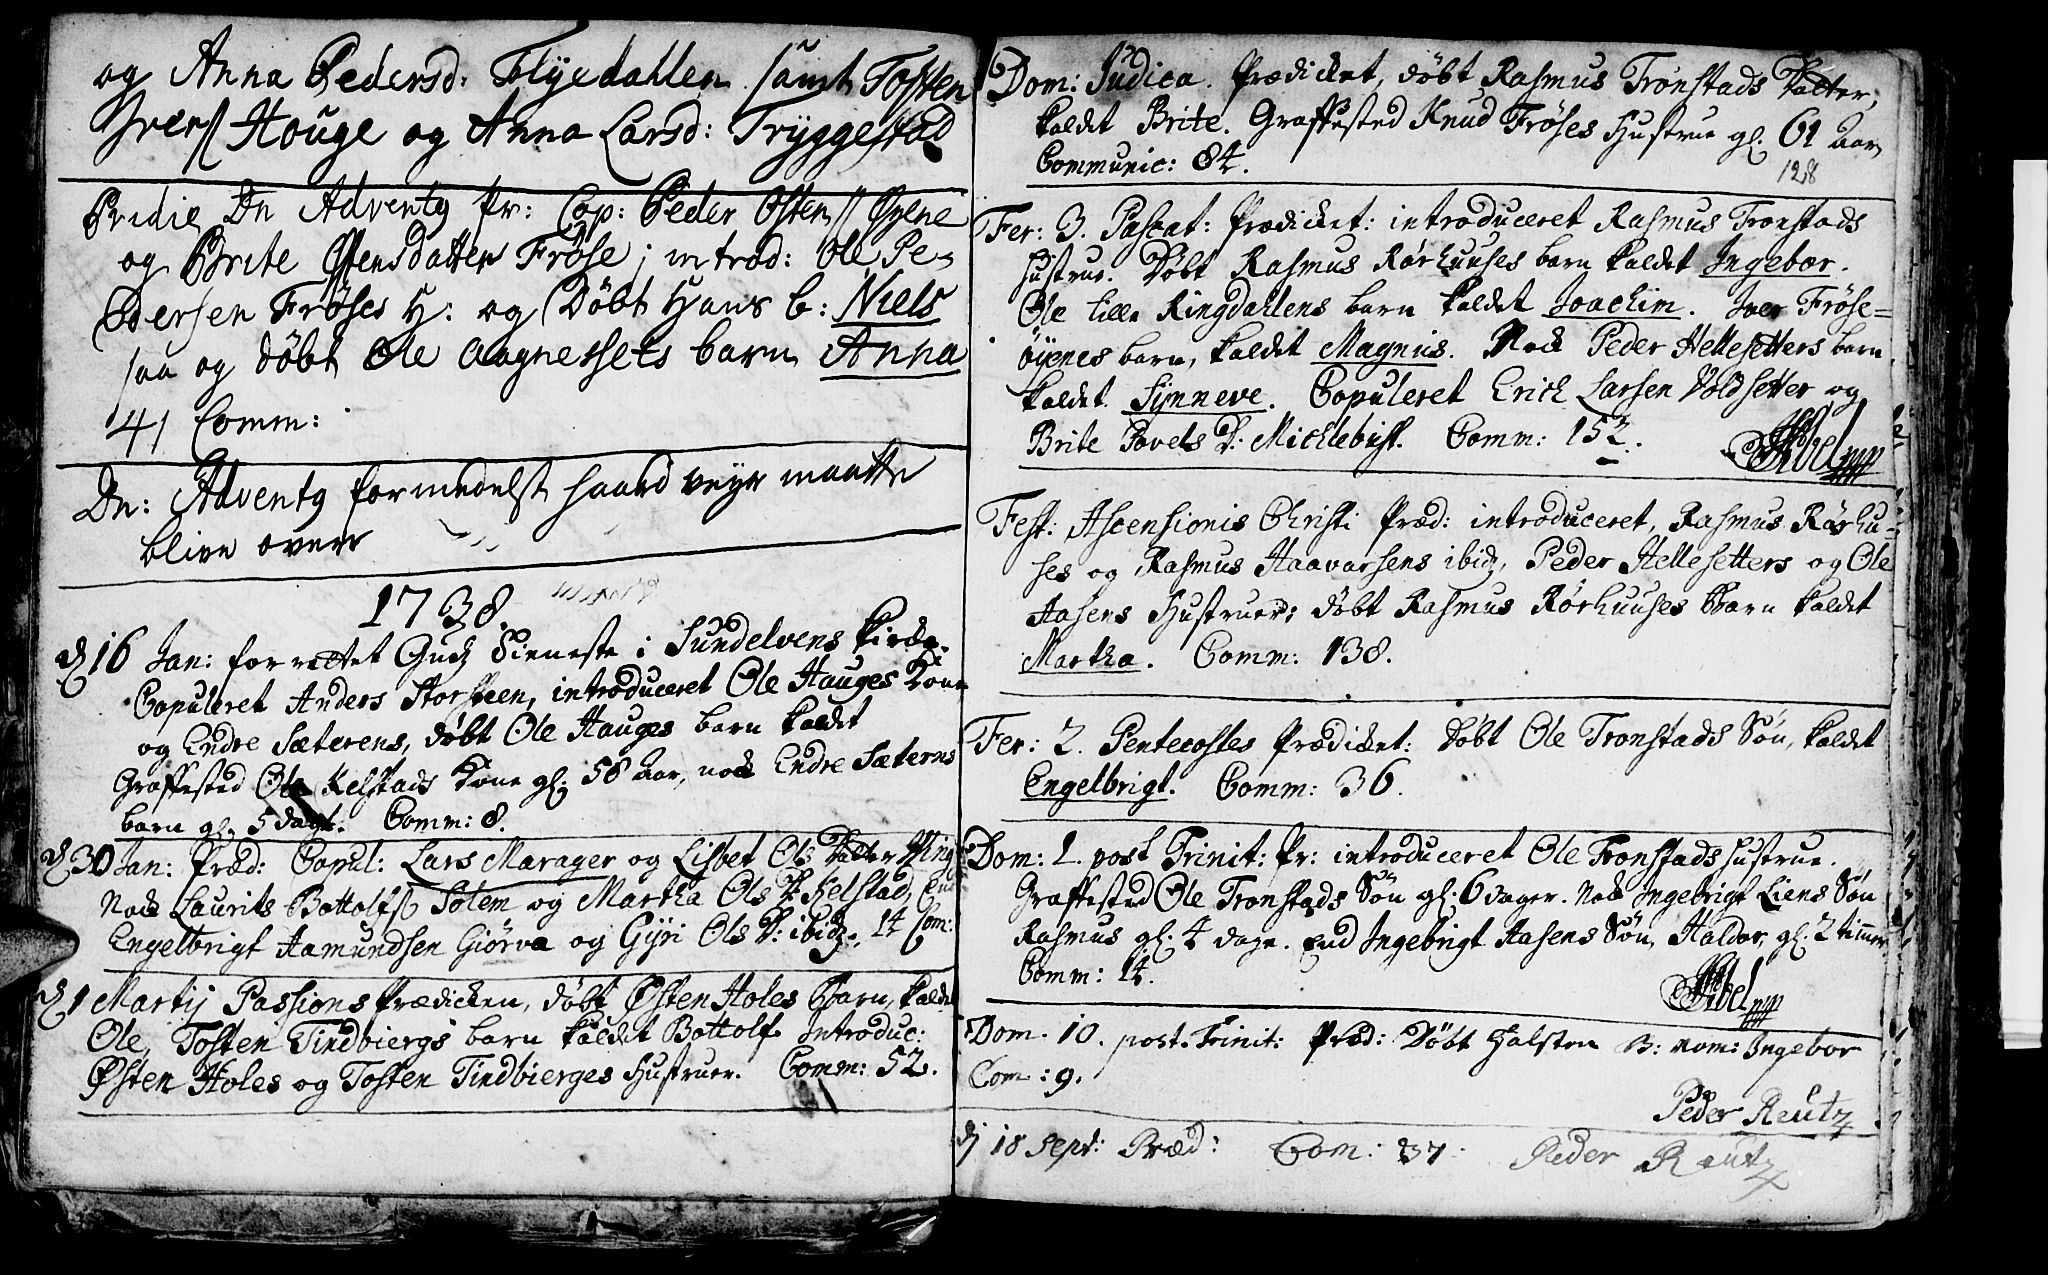 og Anna Pedersd: Flyedahlen samt Tosten
Iverss Houge og Anna Larsd: Tryggestad
Pridie Dn Adventq Pr: Cop: Peder Ostenss Øyene
og Brite Østensdatter Frøse; introd: Ole Pe-
dersen Frøses H: og Døbt Hans b: Niels
saa og døbt Ole Aagnessets barn Anna
41 Comm:
Dn: Adventq formedelst haard veyr maatte
blive over
1738.
d 16 Jan: forrettet Gudz Tieneste i Sundelvens Kirche.
Copuleret Anders Storsteen, introduceret Ole Hauges Kone
og Endre Sæterens, døbt Ole Hauges barn kaldet
Graffested Ole Kelstads Kone gl: 58 Aar, nock Endre Sæterns
barn gl. 5 dagr. Comm: 8.
d 30 Jan: Præd: Copul: Lars Marager og Lisbet Ols Datter
Nock Laurits Bottolfss Solem og Martha Ols D: Kelstad, End
Engelbrigt Aamundsen Giørva og Gyri Ols D: ibid:, 14 Com:
d 1 Martij Passions Prædicken, døbt Østen Holes Barn, kaldet
Ole, Tosten Tindbiergs barn kaldet Bottolf. Introduc:
Østen Holes og Tosten Tindbierges Hustruer. Comm: 52.
Dom: Judica. Prædicket, døbt Rasmus Tronstads Datter,
kaldet Brite. Graffested Knud Frøses Hustrue gl. 61 Aar,
Communic: 84.
128
Fer: 3. Pascat: Prædicket: introduceret Rasmus Tronstads
Hustrue. Døbt Rasmus Rørhuuses barn kaldet Ingebor.
Ole lille Ringdahlens barn kaldet Joachim. Iver Frøse=
øyenes barn, kaldet Magnus. Nock Peder Hellesetters barn,
kaldet Synneve. Copuleret Erich Larsen Voldsetter og
Brite Povels D: Michlebust. Comm: 152.
Fest: Ascensionis Christi Præd: introduceret, Rasmus Rørhu-
ses og Rasmus Haavarsens ibid, Peder Hellesetters og Ole
Aasens Hustruer; døbt Rasmus Rørhuuses Barn kaldet
Martha. Comm: 138.
Fer: 2. Pentecostes Prædicket: Døbt Ole Tronstads Søn, kaldet
Engelbrigt. Comm: 36.
Dom: 2. post Trinit: Pr: introduceret Ole Tronstads Hustrue.
Graffested Ole Tronstads Søn gl: 6 dager. Nock Ingebrigt Liens Søn
Rasmus gl: 4 dage. End Ingebrigt Aasens Søn, Haldor, gl: 2 timer
Comm: 14.
Abel
Dom. 10. post. Trinit: Præd: Døbt Halsten B: nom: Ingebor
Com: 9.
Peder Reutz
dj 18 Sept: Præd: Com: 37. Peder Reutz